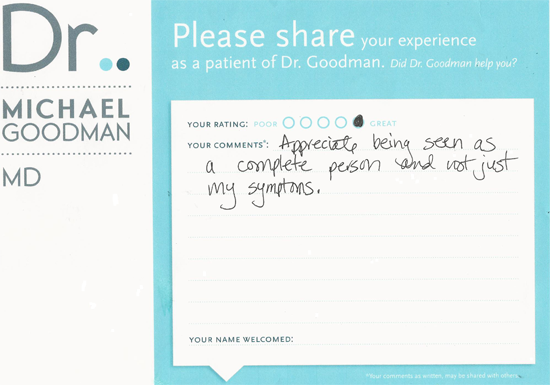 Dr.
MICHAEL
GOODMAN
MD
Please share your experience
as a patient of Dr. Goodman. Did Dr. Goodman help you?
YOUR RATING: POOR GREAT
YOUR COMMENTS*: Appreciate being seen as
a complete person and not just
my symptoms.
YOUR NAME WELCOMED:
*Your comments as written, may be shared with others.